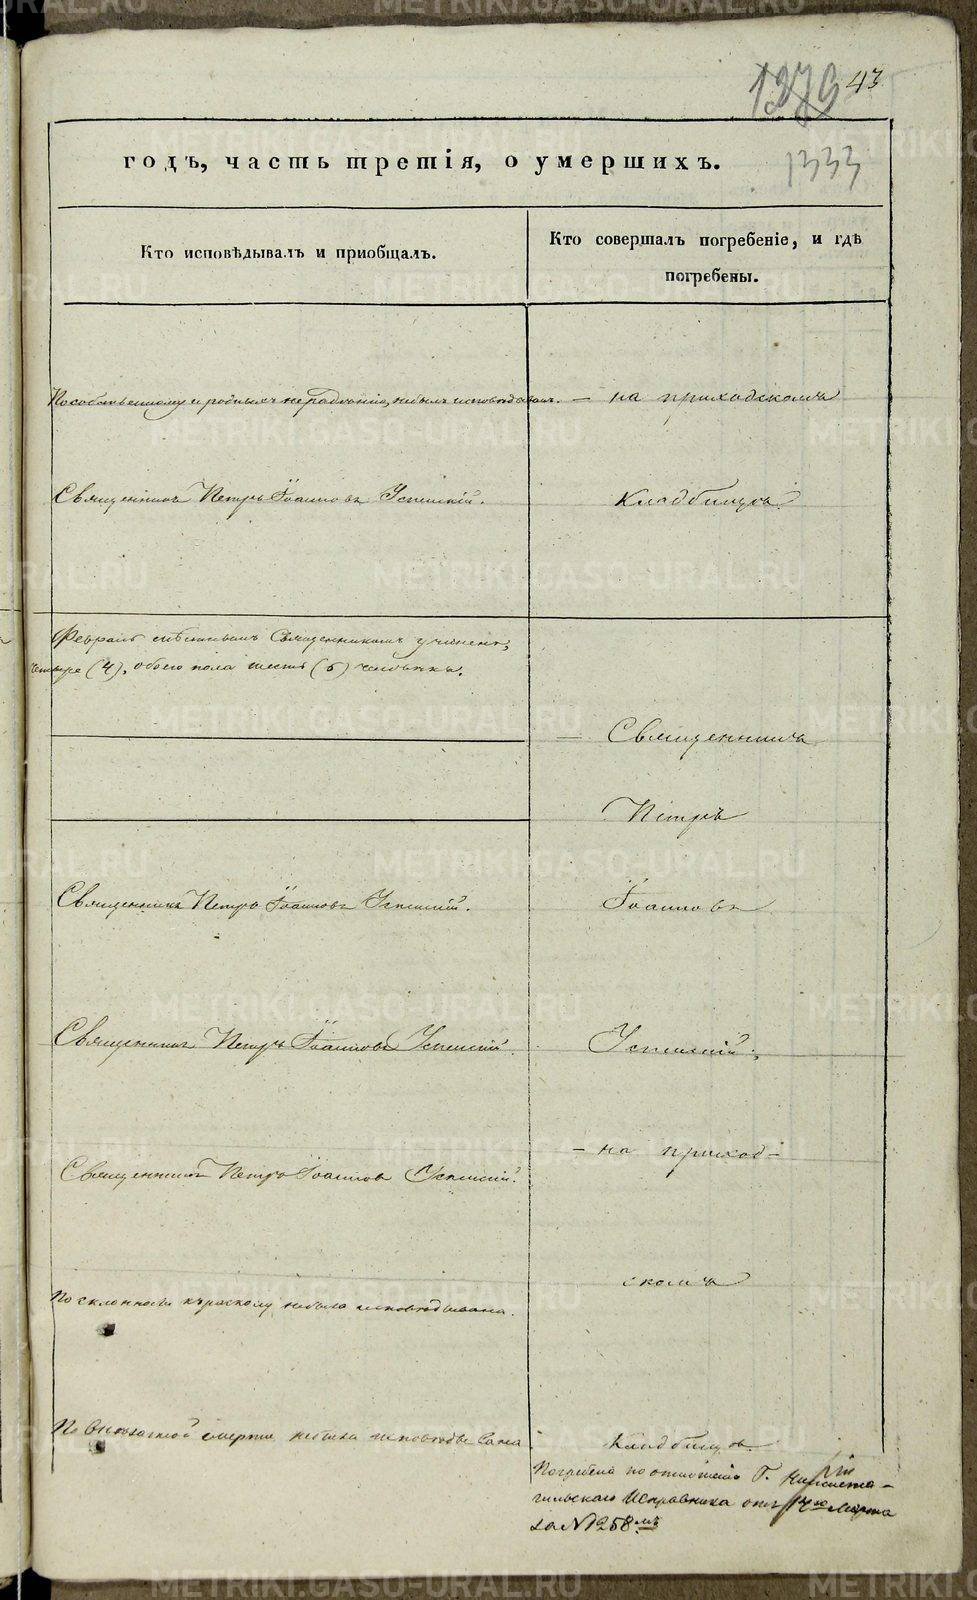 1279 43
годъ, часть третія, о умершихъ.
1333
Кто исповѣдывалъ и пріобщалъ.
Кто совершалъ погребеніе, и гдѣ
погребены.
По собственному и родныхъ нерадѣнію, небылъ исповѣдыванъ. — на приходскомъ
Священникъ Петръ Іоанновъ Успенскій.
Кладбищѣ.
Февралѣ мѣсяцѣ Священникомъ
четыре (4), обоего пола шесть (6) человѣкъ.
— Священникъ
Петръ
Священникъ Петръ Іоанновъ Успенскій.
Іоанновъ
Священникъ Петръ Іоанновъ Успенскій.
Успенскій;
— на приход-
Священникъ Петръ Іоанновъ Успенскій.
скомъ
По склонности къ расколу небыла исповѣдывана.
По внезапной смерти небыла исповѣдывана
Кладбищѣ.
Погребена по отношенію Г. Нижнета-
гильскаго Исправника отъ Марта
за № 258мъ
METRIKI.GASO-URAL.RU